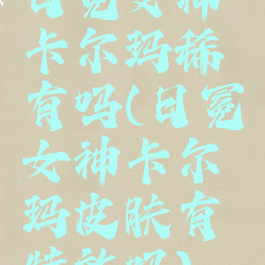 日冕女神
卡尔玛稀
有吗(日冕
女神卡尔
玛皮肤有
特效吗)